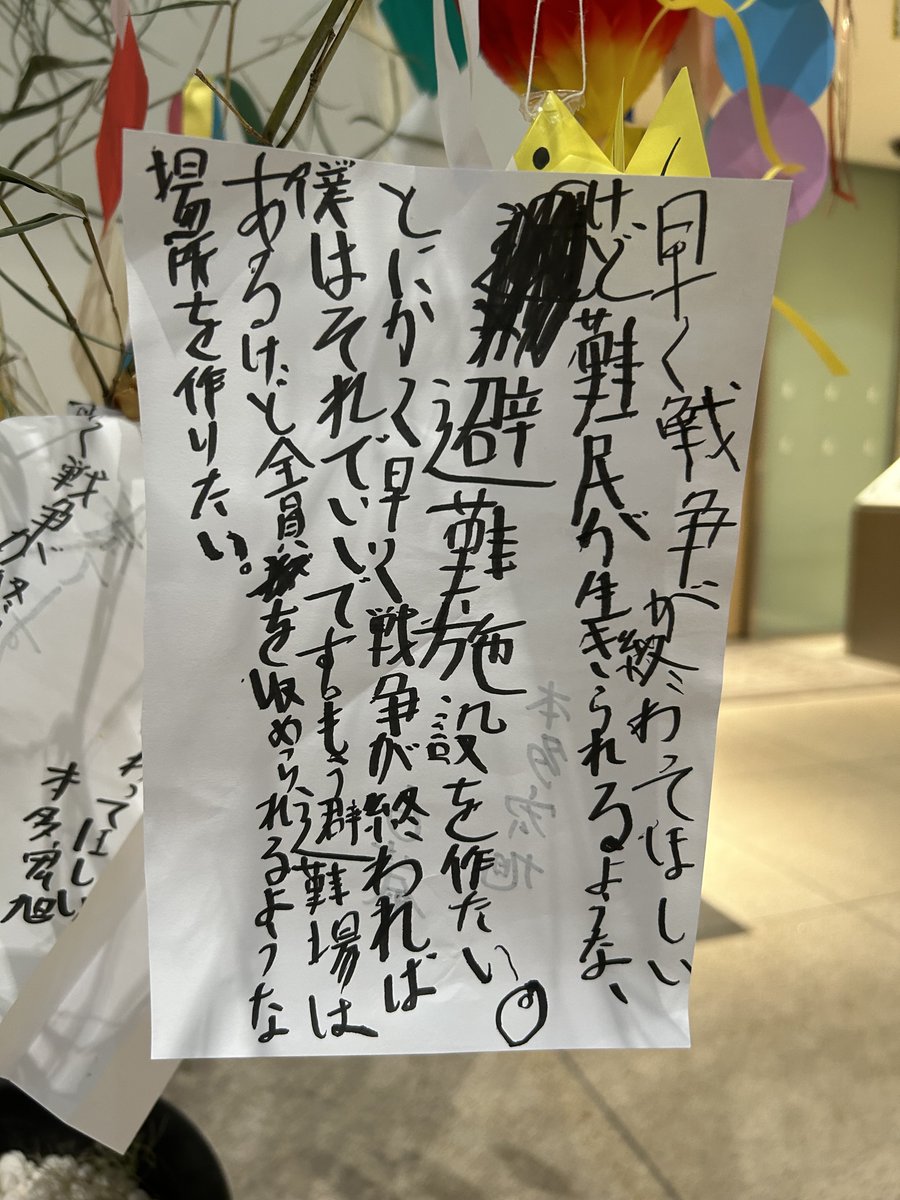 早く戦争が終わってほしい
けど難民が生きられるような、
避難施設を作たい。
とにかく早く戦争が終われば
僕はそれでいいです。もう避難場は
あるけど全員を収められるような
場所を作りたい。
く戦争が
ってほしい